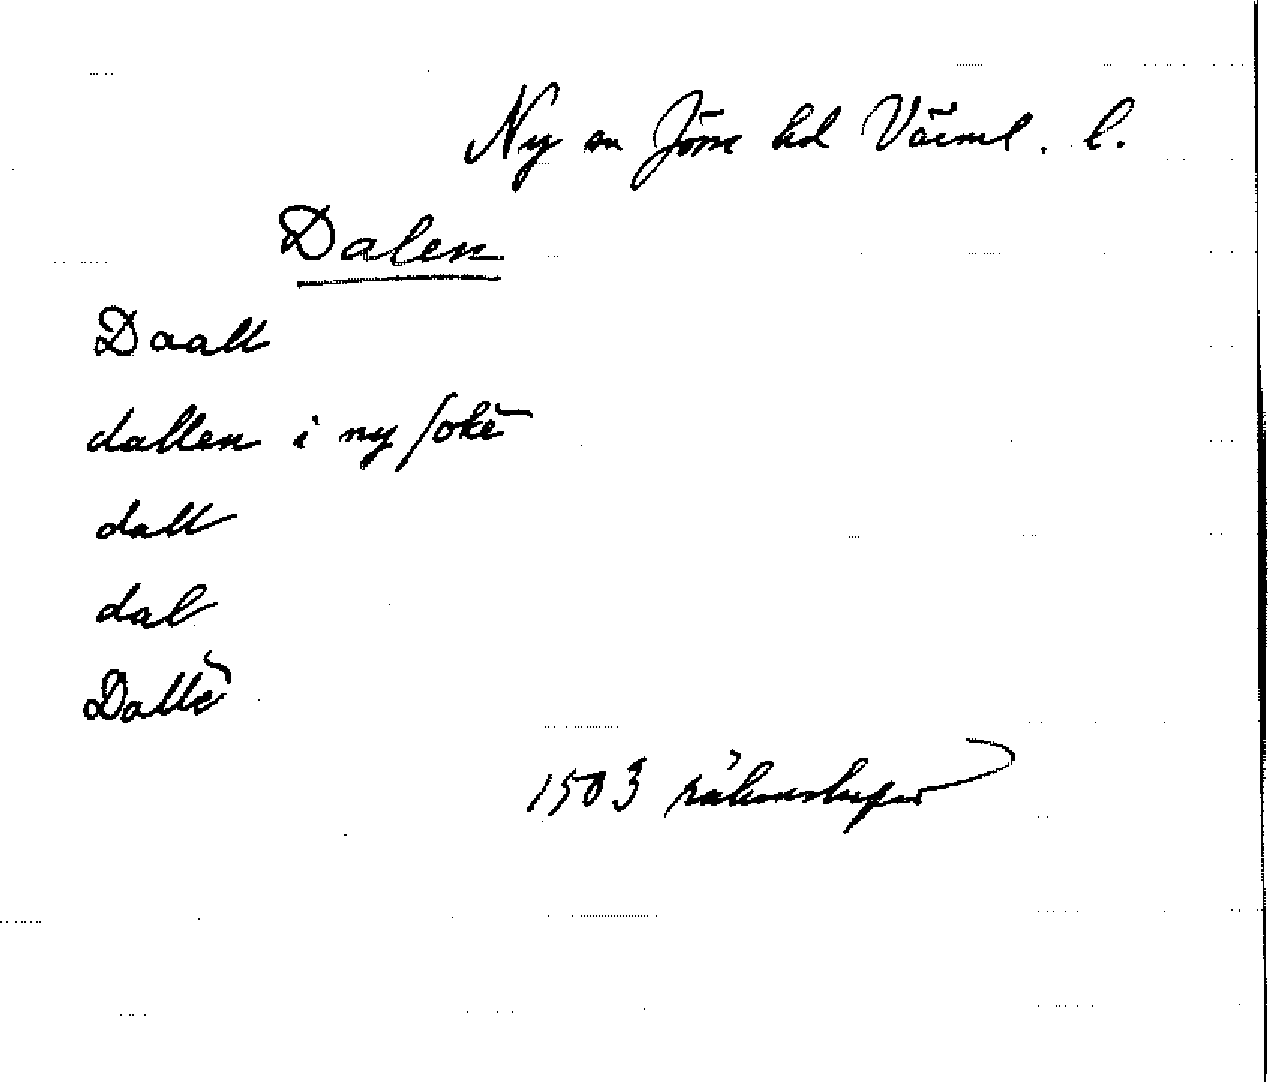 Ny sn Jösse hd Värml. l.
Dalen
Daall
dallen i ny sokē
dall
dal
Dallē
1503 räkenskaper